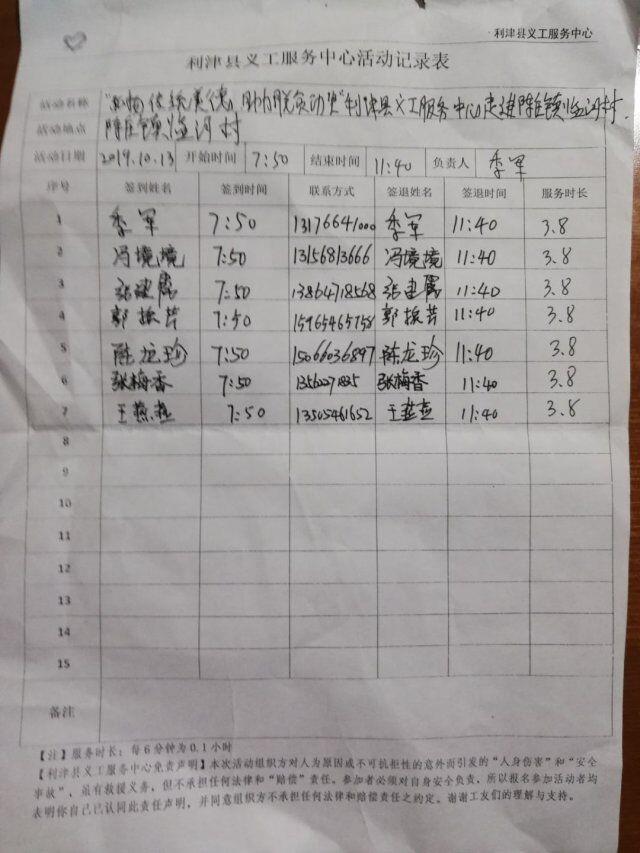 利津县义工服务中心
利津县义工服务中心活动记录表
活动名称 "弘扬传统美德,助力脱贫攻坚"利津县义工服务中心走进陈庄镇临河村.
活动地点 陈庄镇临河村
活动日期 2019.10.13 开始时间 7:50 结束时间 11:40 负责人 李军
序号 签到姓名 签到时间 联系方式 签退姓名 签退时间 服务时长
1 李军 7:50 13176641000 李军 11:40 3.8
2 冯境境 7:50 13156813666 冯境境 11:40 3.8
3 张建 7:50 13864718568 张建 11:40 3.8
4 郭振芹 7:50 15965465758 郭振芹 11:40 3.8
5 陈龙珍 7:50 15066036897 陈龙珍 11:40 3.8
6 张梅香 7:50 张梅香 11:40 3.8
7 王燕燕 7:50 13505461652 王燕燕 11:40 3.8
8
9
10
11
12
13
14
15
备注
【注】服务时长:每6分钟为0.1小时
【利津县义工服务中心免责声明】本次活动组织方对人为原因或不可抗拒性的意外而引发的"人身伤害"和"安全
事故",虽有救援义务,但不承担任何法律和"赔偿"责任。参加者必须对自身安全负责,所以报名参加活动者均
表明你自己已认同此责任声明,并同意组织方不承担任何法律和赔偿责任之约定。谢谢工友们的理解与支持。